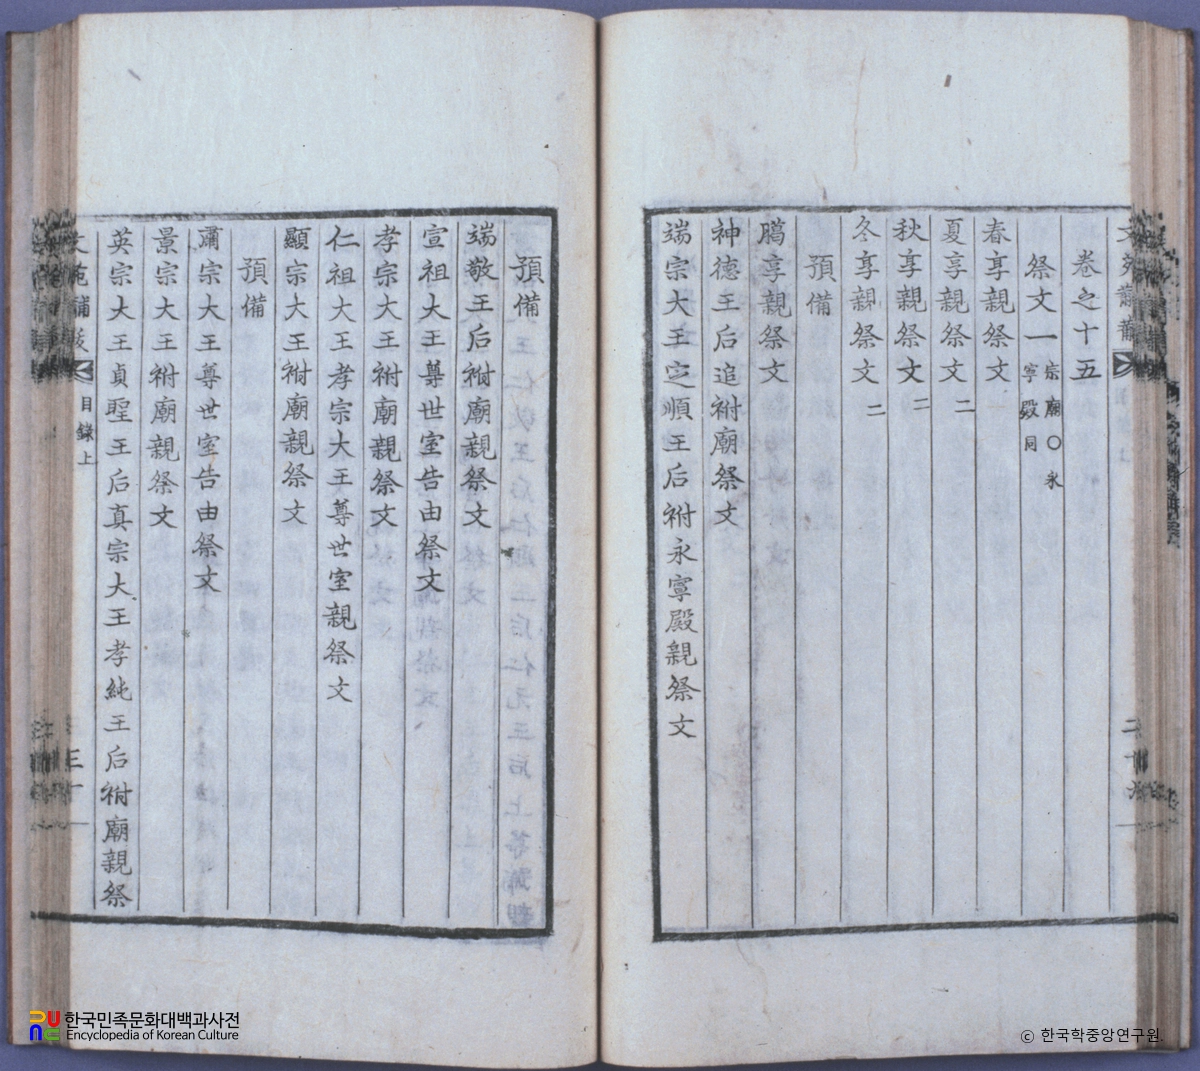 卷之十五
祭文一 宗廟〇永寧殿同
春享親祭文
夏享親祭文二
秋享親祭文二
冬享親祭文二
預備
臈享親祭文
神德王后追祔廟祭文
端宗大王定順王后祔永寧殿親祭文
二十九
預備
端敬王后祔廟親祭文
宣祖大王尊世室告由祭文
孝宗大王祔廟親祭文
仁祖大王孝宗大王尊世室親祭文
顯宗大王祔廟親祭文
預備
肅宗大王尊世室告由祭文
景宗大王祔廟親祭文
英宗大王貞聖王后真宗大王孝純王后祔廟親祭
目錄上
三十
한국민족문화대백과사전
Encyclopedia of Korean Culture
ⓒ 한국학중앙연구원